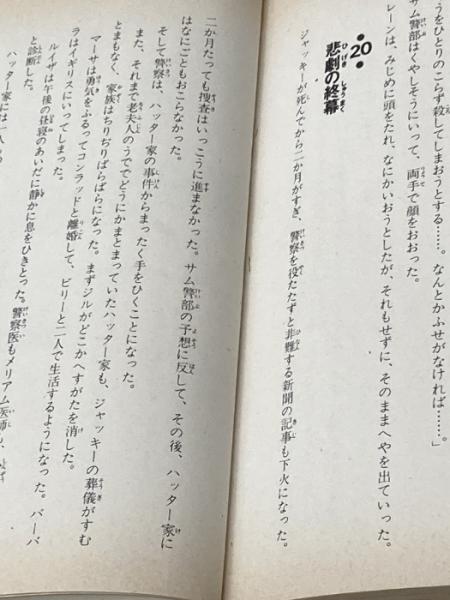 うをひとりのこらず殺してしまおうとする……。なんとかふせがなければ……。」
サム警部はくやしそうにいって、両手で顔をおおった。
レーンは、みじめに頭をたれ、なにかいおうとしたが、それもせずに、そのままへやを出ていった。
●20●
悲劇の終幕
ジャッキーが死んでから二か月がすぎ、警察を役たたずと非難する新聞の記事も下火になった。
二か月たっても捜査はいっこうに進まなかった。サム警部の予想に反して、その後、ハッター家に
はなにごともおこらなかった。
そして警察は、ハッター家の事件からまったく手をひくことになった。
また、それまで老夫人のうででどうにかまとまっていたハッター家も、ジャッキーの葬儀がすむ
とまもなく、家族はちりぢりばらばらになった。まずジルがどこかへすがたを消した。
マーサは勇気をふるってコンラッドと離婚して、ビリーと二人で生活するようになった。バーバ
ラはイギリスにいってしまった。
ルイザは午後の昼寝のあいだに静かに息をひきとった。警察医もメリアム医師も、
と診断した。
ハッター家には一人